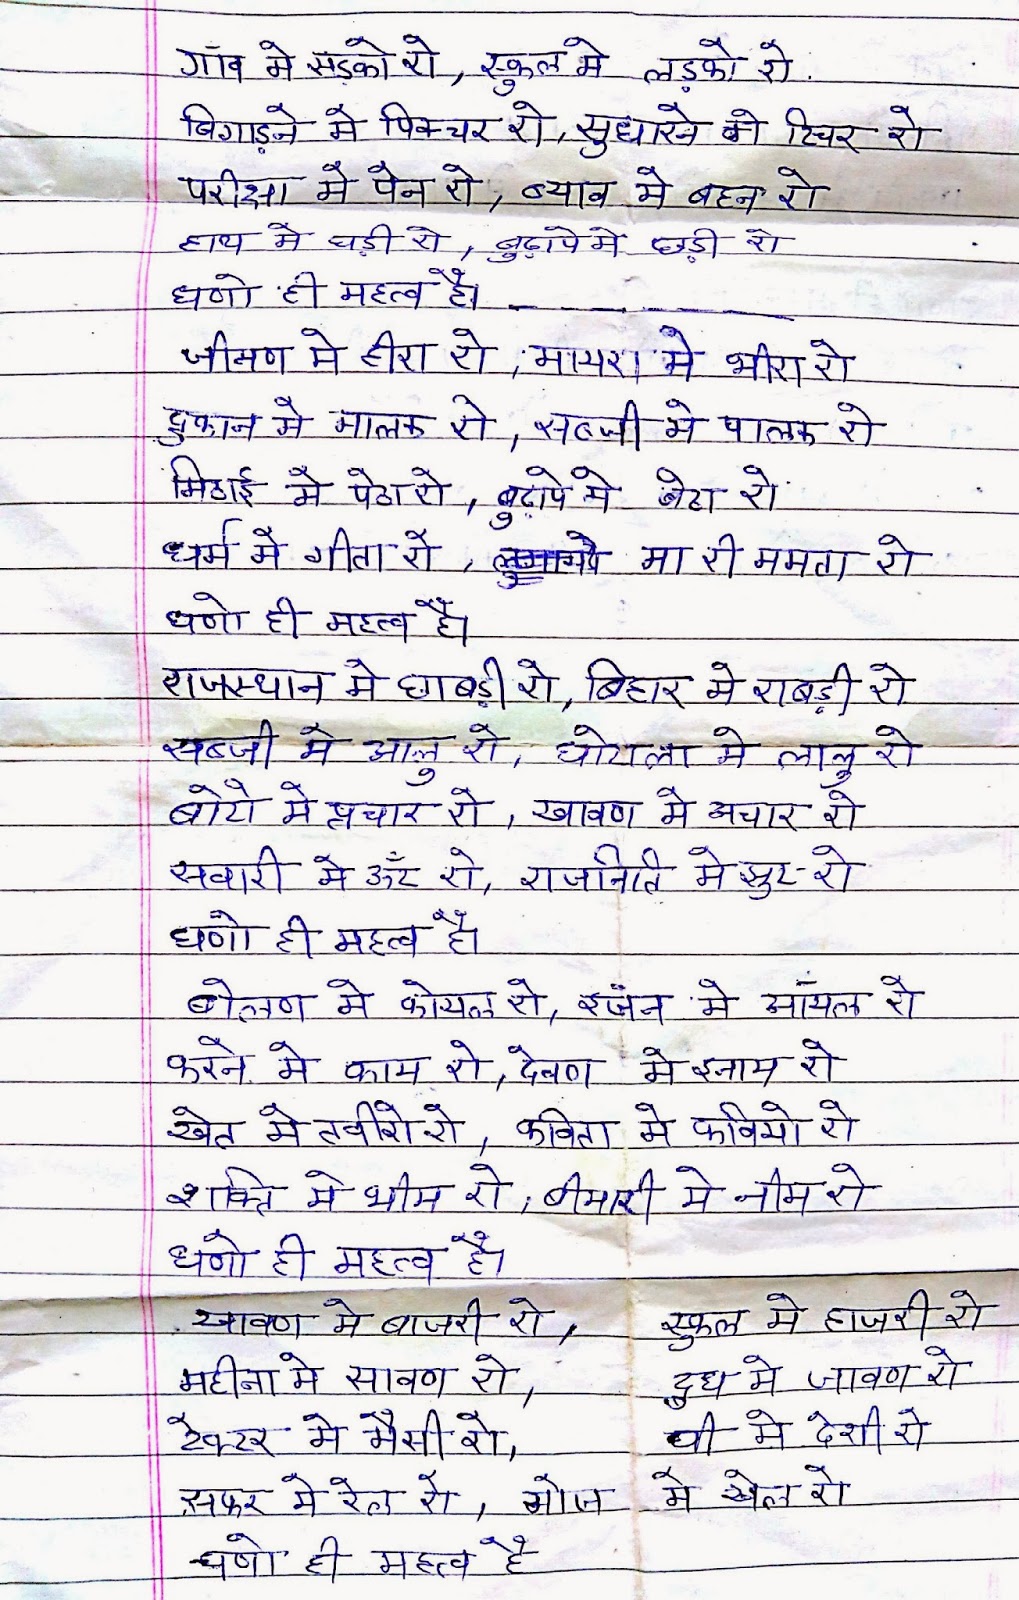 गाँव मे सड़को रो, स्कुल मे लड़को रो.
बिगाड़ने मे पिक्चर रो, सुधारने को टिचर रो
परीक्षा मे पेन रो, ब्याव मे बहन रो
हाथ मे घड़ी रो, बुढ़ापे मे छड़ी रो
घणो ही महत्व है।
जीमण मे हीरा रो, मायरा मे भीरा रो
दुकान मे मालक रो, सब्जी मे पालक रो
मिठाई मे पेठा रो, बुढ़ापे मे बेटा रो
धर्म मे गीता रो, मा री ममता रो
घणो ही महत्व है।
राजस्थान मे छाबड़ी रो, बिहार मे राबड़ी रो
सब्जी मे आलु रो, घोटाला मे लालु रो
बोटो मे प्रचार रो, खावण मे अचार रो
सवारी मे ऊँट रो, राजनिति मे झुट रो
घणो ही महत्व है।
बोलण मे कोयल रो, इजंन मे ऑयल रो
करने मे काम रो, देवण मे इनाम रो
खेत मे रो, कविता मे कवियो रो
शक्ति मे भीम रो, बीमारी मे नीम रो
घणो ही महत्व है।
खावण मे बाजरी रो, स्कुल मे हाजरी रो
महीना मे सावण रो, दुध मे जावण रो
टेक्टर मे मैसी रो, घी मे देशी रो
सफर मे रेल रो, मोज मे खेल रो
घणो ही महत्व है